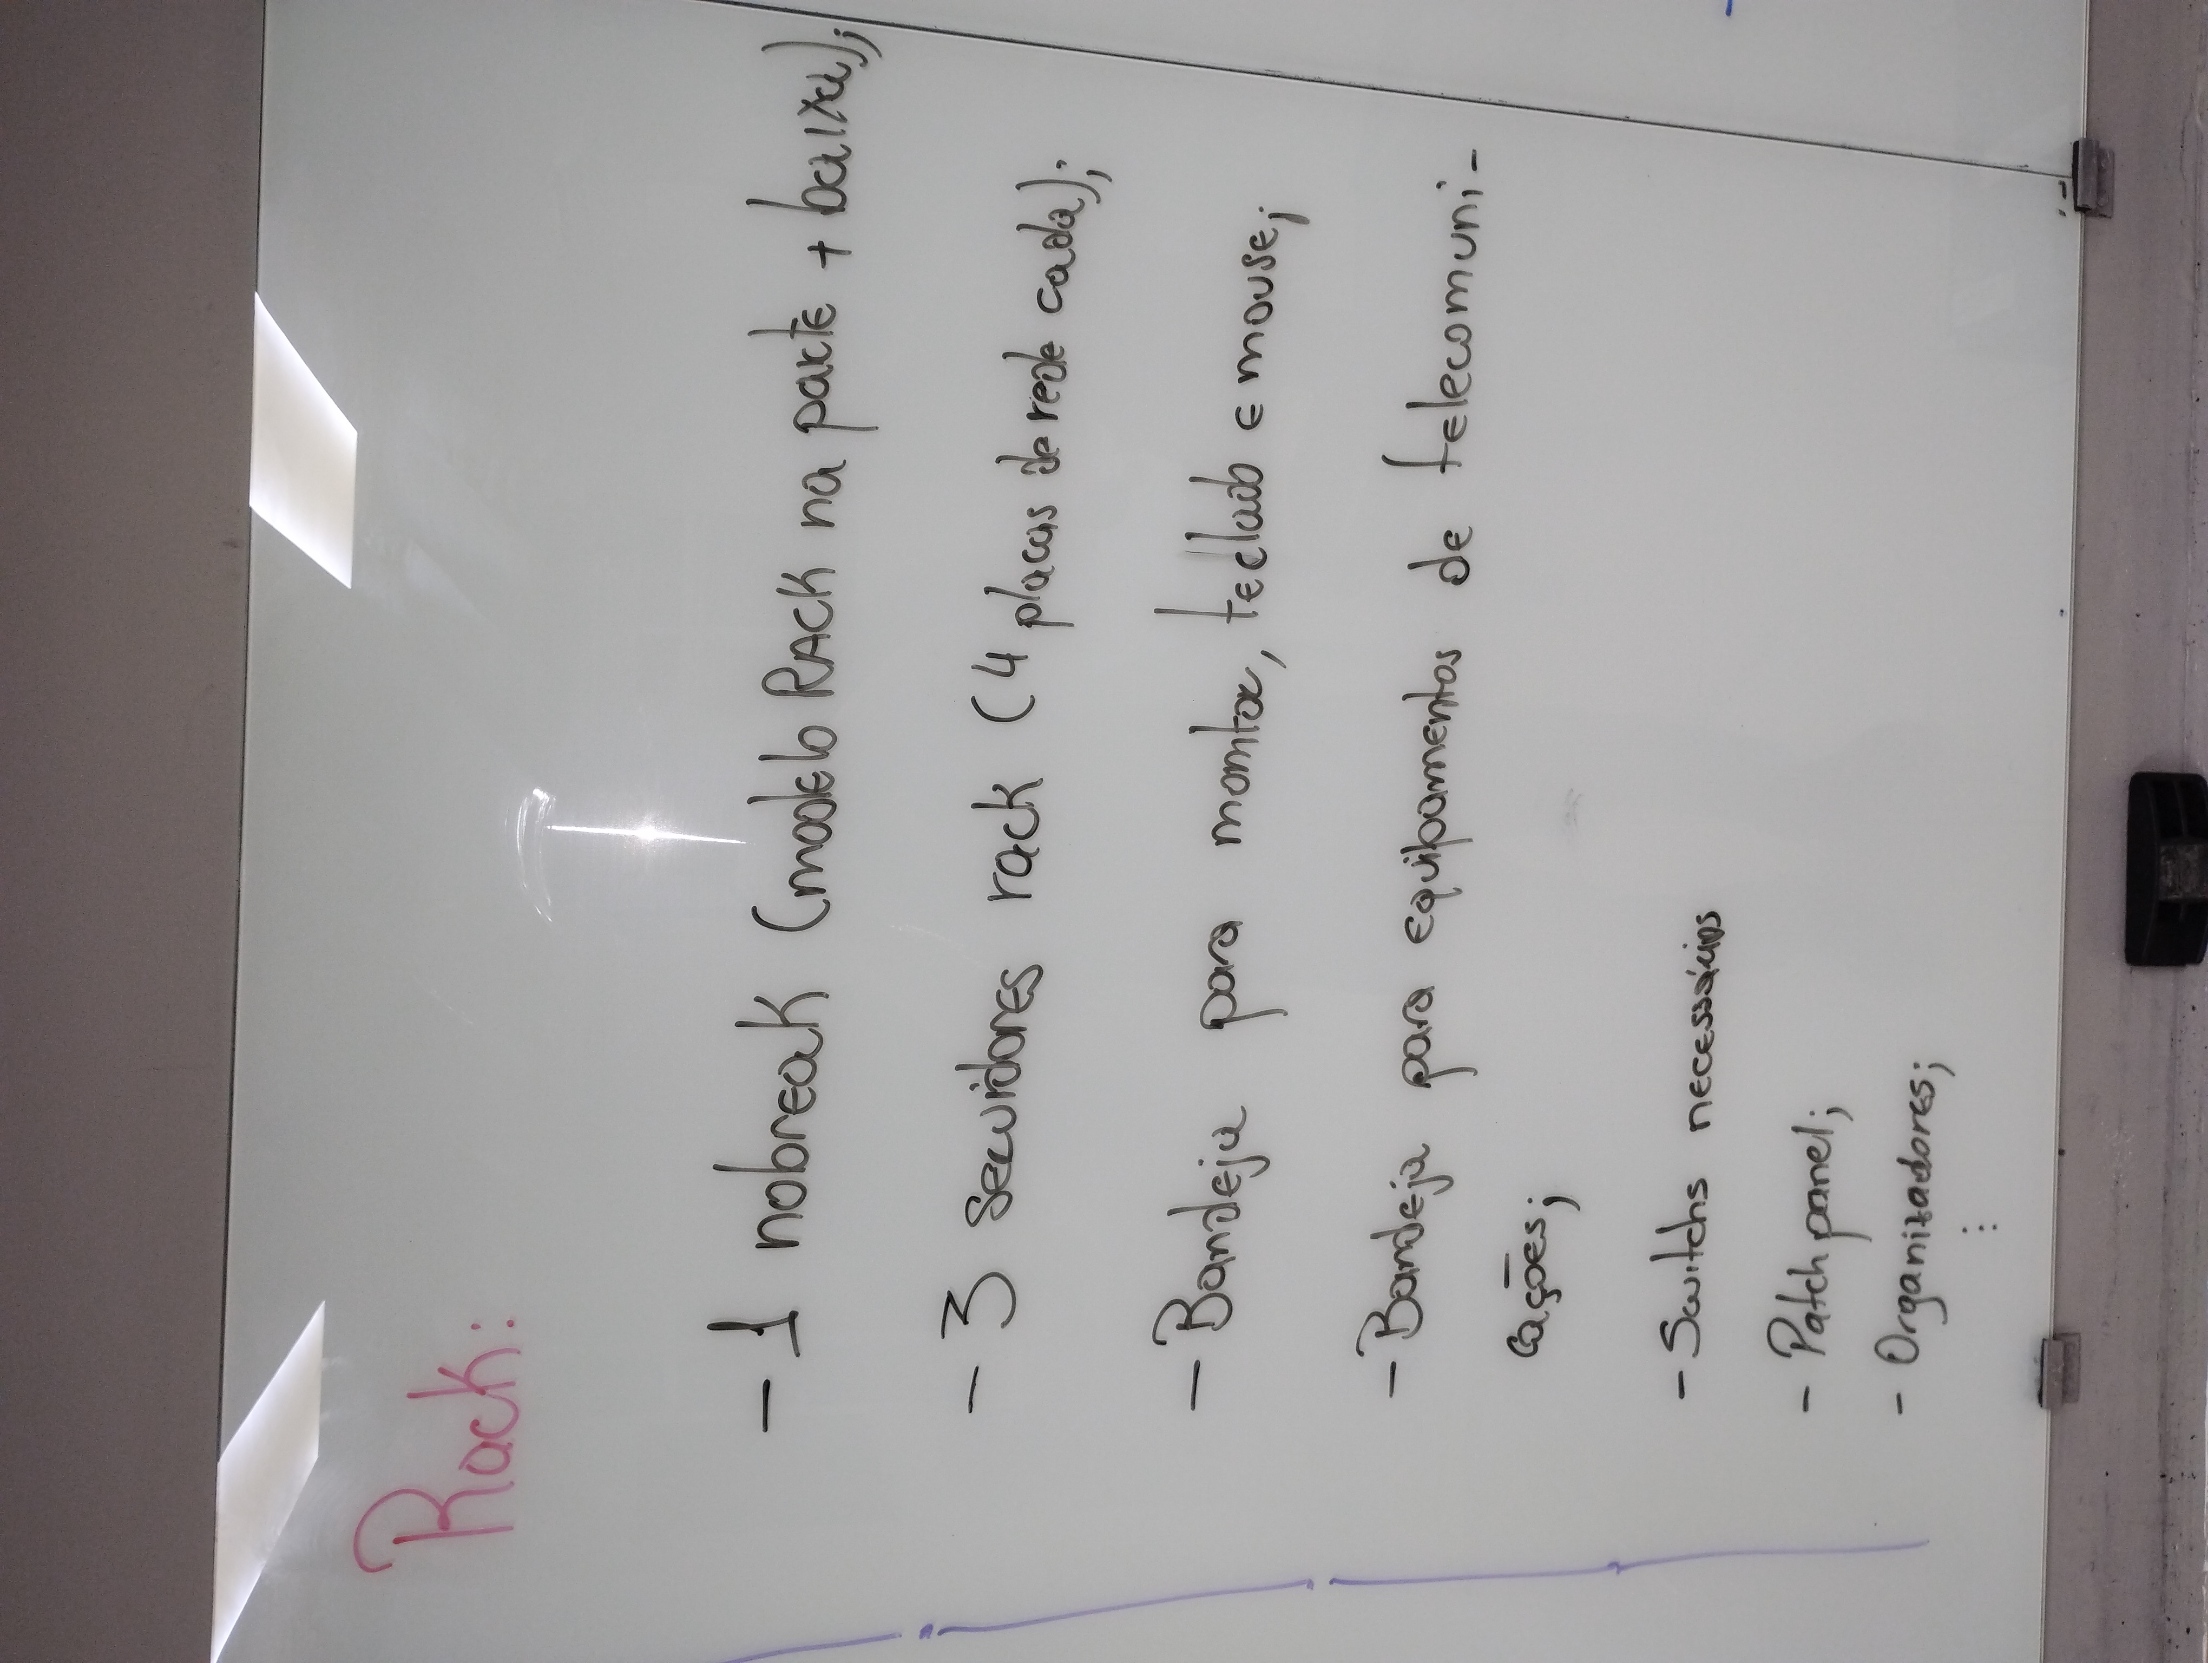 Rack:
- 1 nobreak (modelo RACK na parte + baixa);
- 3 servidores rack (4 placas de rede cada);
- Bandeja para monitor, teclado e mouse;
- Bandeja para equipamentos de telecomuni-
cações;
- Switchs necessários
- Patch panel;
- Organizadores;
⋮